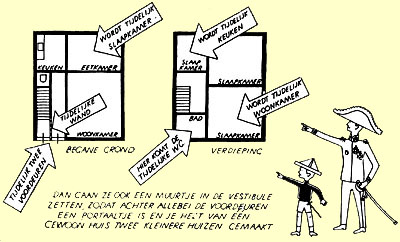 WORDT TIJDELIJK
SLAAPKAMER.
KEUKEN
EETKAMER
TIJDELIJKE
WAND
WOONKAMER
TIJDELIJK TWEE
VOORDEUREN
BEGANE GROND
WORDT TIJDELIJK
KEUKEN
SLAAP
KAMER
SLAAPKAMER
WORDT TIJDELIJK
WOONKAMER
BAD
SLAAPKAMER
HIER KOMT DE
TIJDELIJKE WC
VERDIEPING
DAN GAAN ZE OOK EEN MUURTJE IN DE VESTIBULE
ZETTEN, ZODAT ACHTER ALLEBEI DE VOORDEUREN
EEN PORTAALTJE IS EN JE HEBT VAN EEN
GEWOON HUIS TWEE KLEINERE HUIZEN GEMAAKT